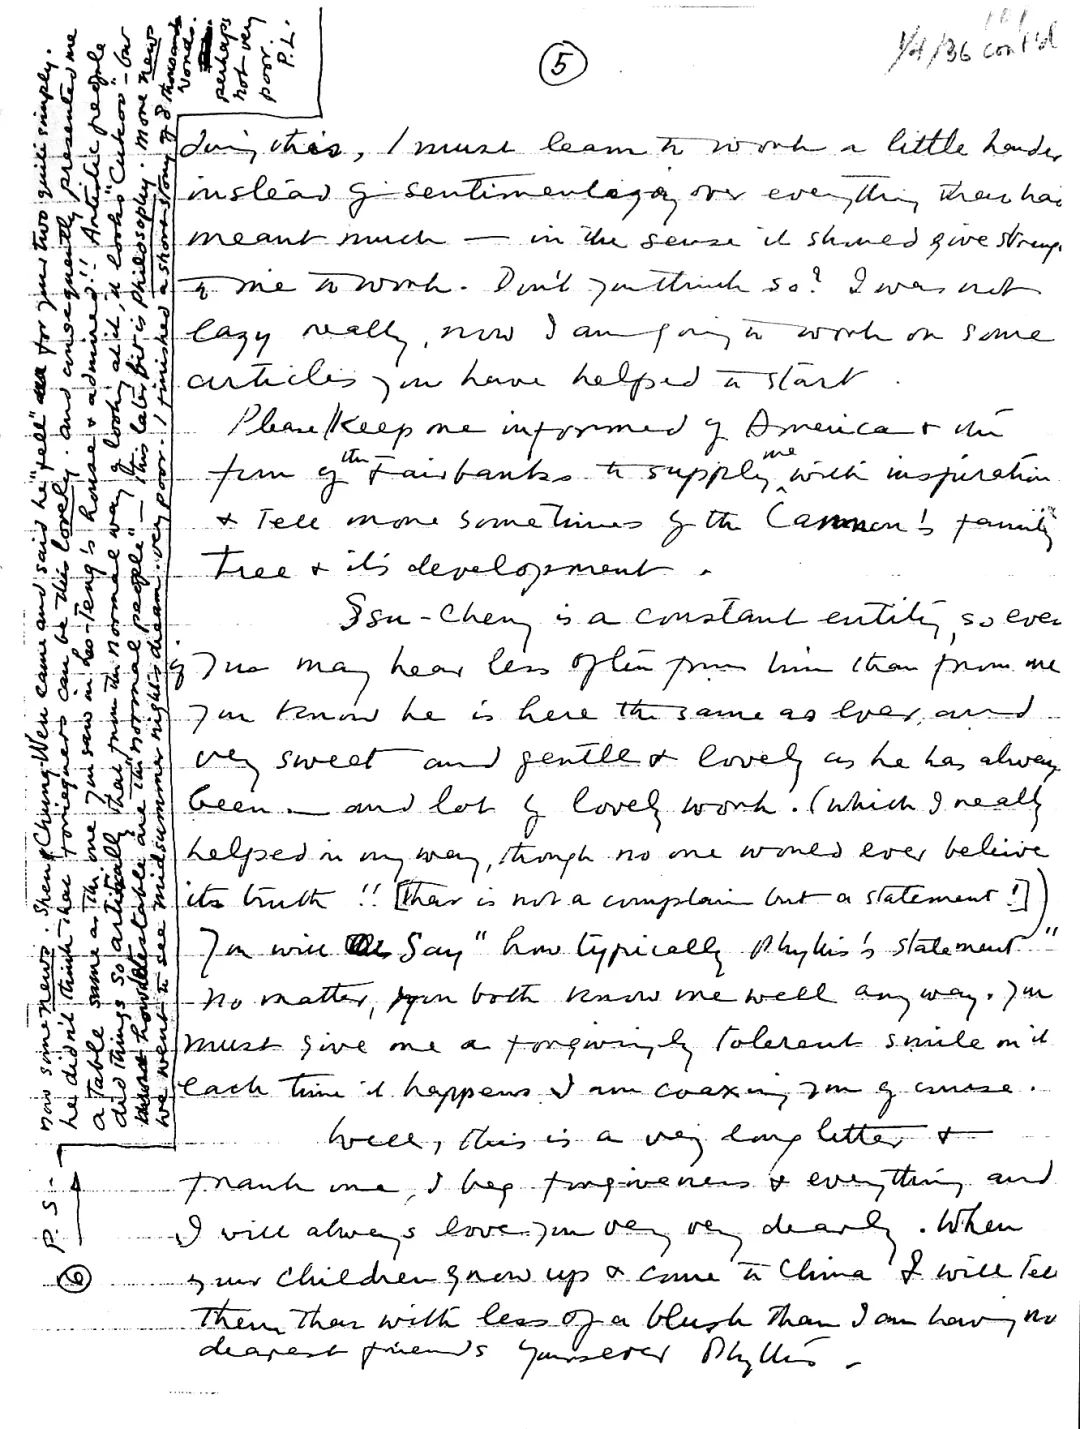 5
1/4/36 cont'd
doing this, I must learn to work a little harder
instead of sentimentalizing over everything that has
meant much — in the sense it should give strength
to me to work. Don't you think so? I was not
lazy really, now I am going to work on some
articles you have helped to start.
Please keep me informed of America & the
fun of the Fairbanks to supply me with inspiration
& Tell more sometimes of the Cannon's family
Tree & it's development.
Ssu-Cheng is a constant entity, so even
if you may hear less often from him than from me
you know he is here the same as ever, and
very sweet and gentle & lovely as he has always
been — and lot of lovely work. (which I really
helped in my way, though no one would ever believe
its truth !! [that is not a complain but a statement!])
You will say "how typically Phyllis's statement"
No matter, you both know me well any way. You
must give me a forgivingly tolerent smile on it
each time it happens. I am coaxing you of course.
Well, this is a very long letter &
frank one, I beg forgiveness & everything and
I will always love you very very dearly. When
your children grow up & come to China I will tell
them that with less of a blush than I am having now
dearest friends yoursever Phyllis.
6
P.S.
now some news. Shen Chung-Wen came and said he "fell" for you two quite simply.
he didn't think that foreigners can be this lovely. and consequently presented me
a table same as the one you saw in Lao-Teng's house & admired!! Artistic people
did things so artistically that from the normal way of looking at it, it looks "Cukoo" — but
how detestable are the "normal people" — this later bit is philosophy more news
we went to see midsummer night's dream. very poor. I finished a short story of 8 thousand
words.
perhaps
not very
poor.
P.L.